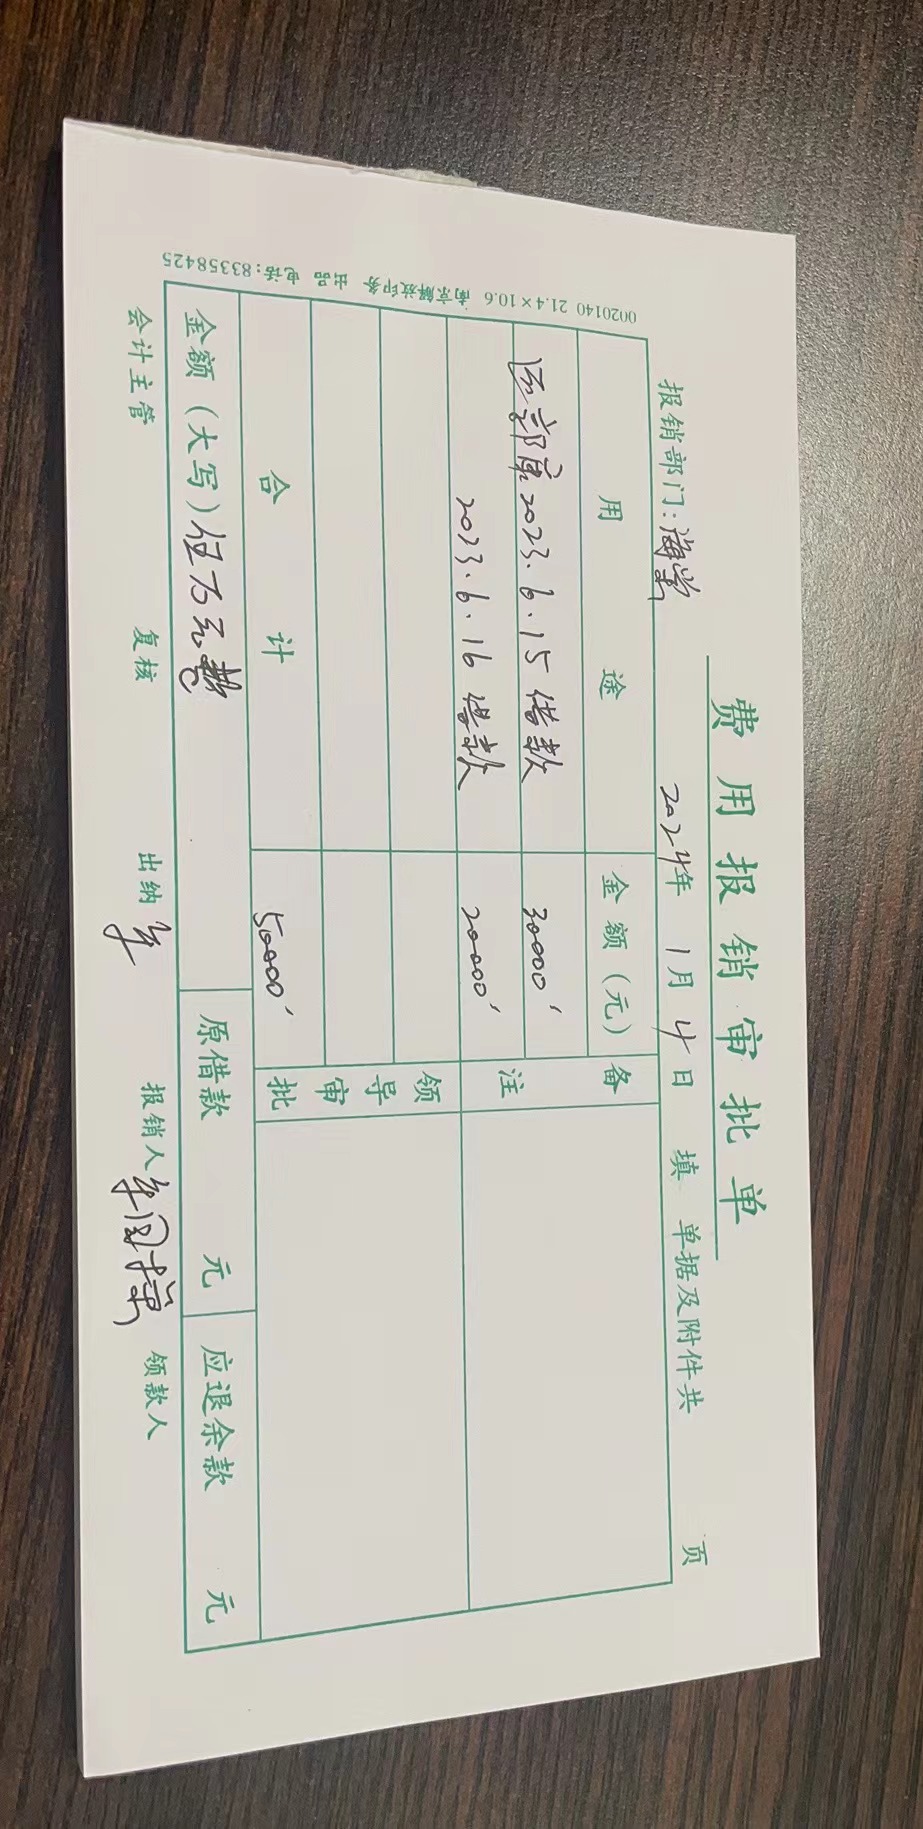 费用报销审批单
报销部门：海棠 2024年 1月 4日 填 单据及附件共 页
用途 金额（元） 备注
还郭康2023.6.15借款 30000'
2023.6.16借款 20000'
领导审批
合计 50000'
金额（大写）伍万元整 原借款 元 应退余款 元
会计主管 复核 出纳 报销人 领款人
0020140 21.4×10.6 南京解放印务 出品 电话：83358425